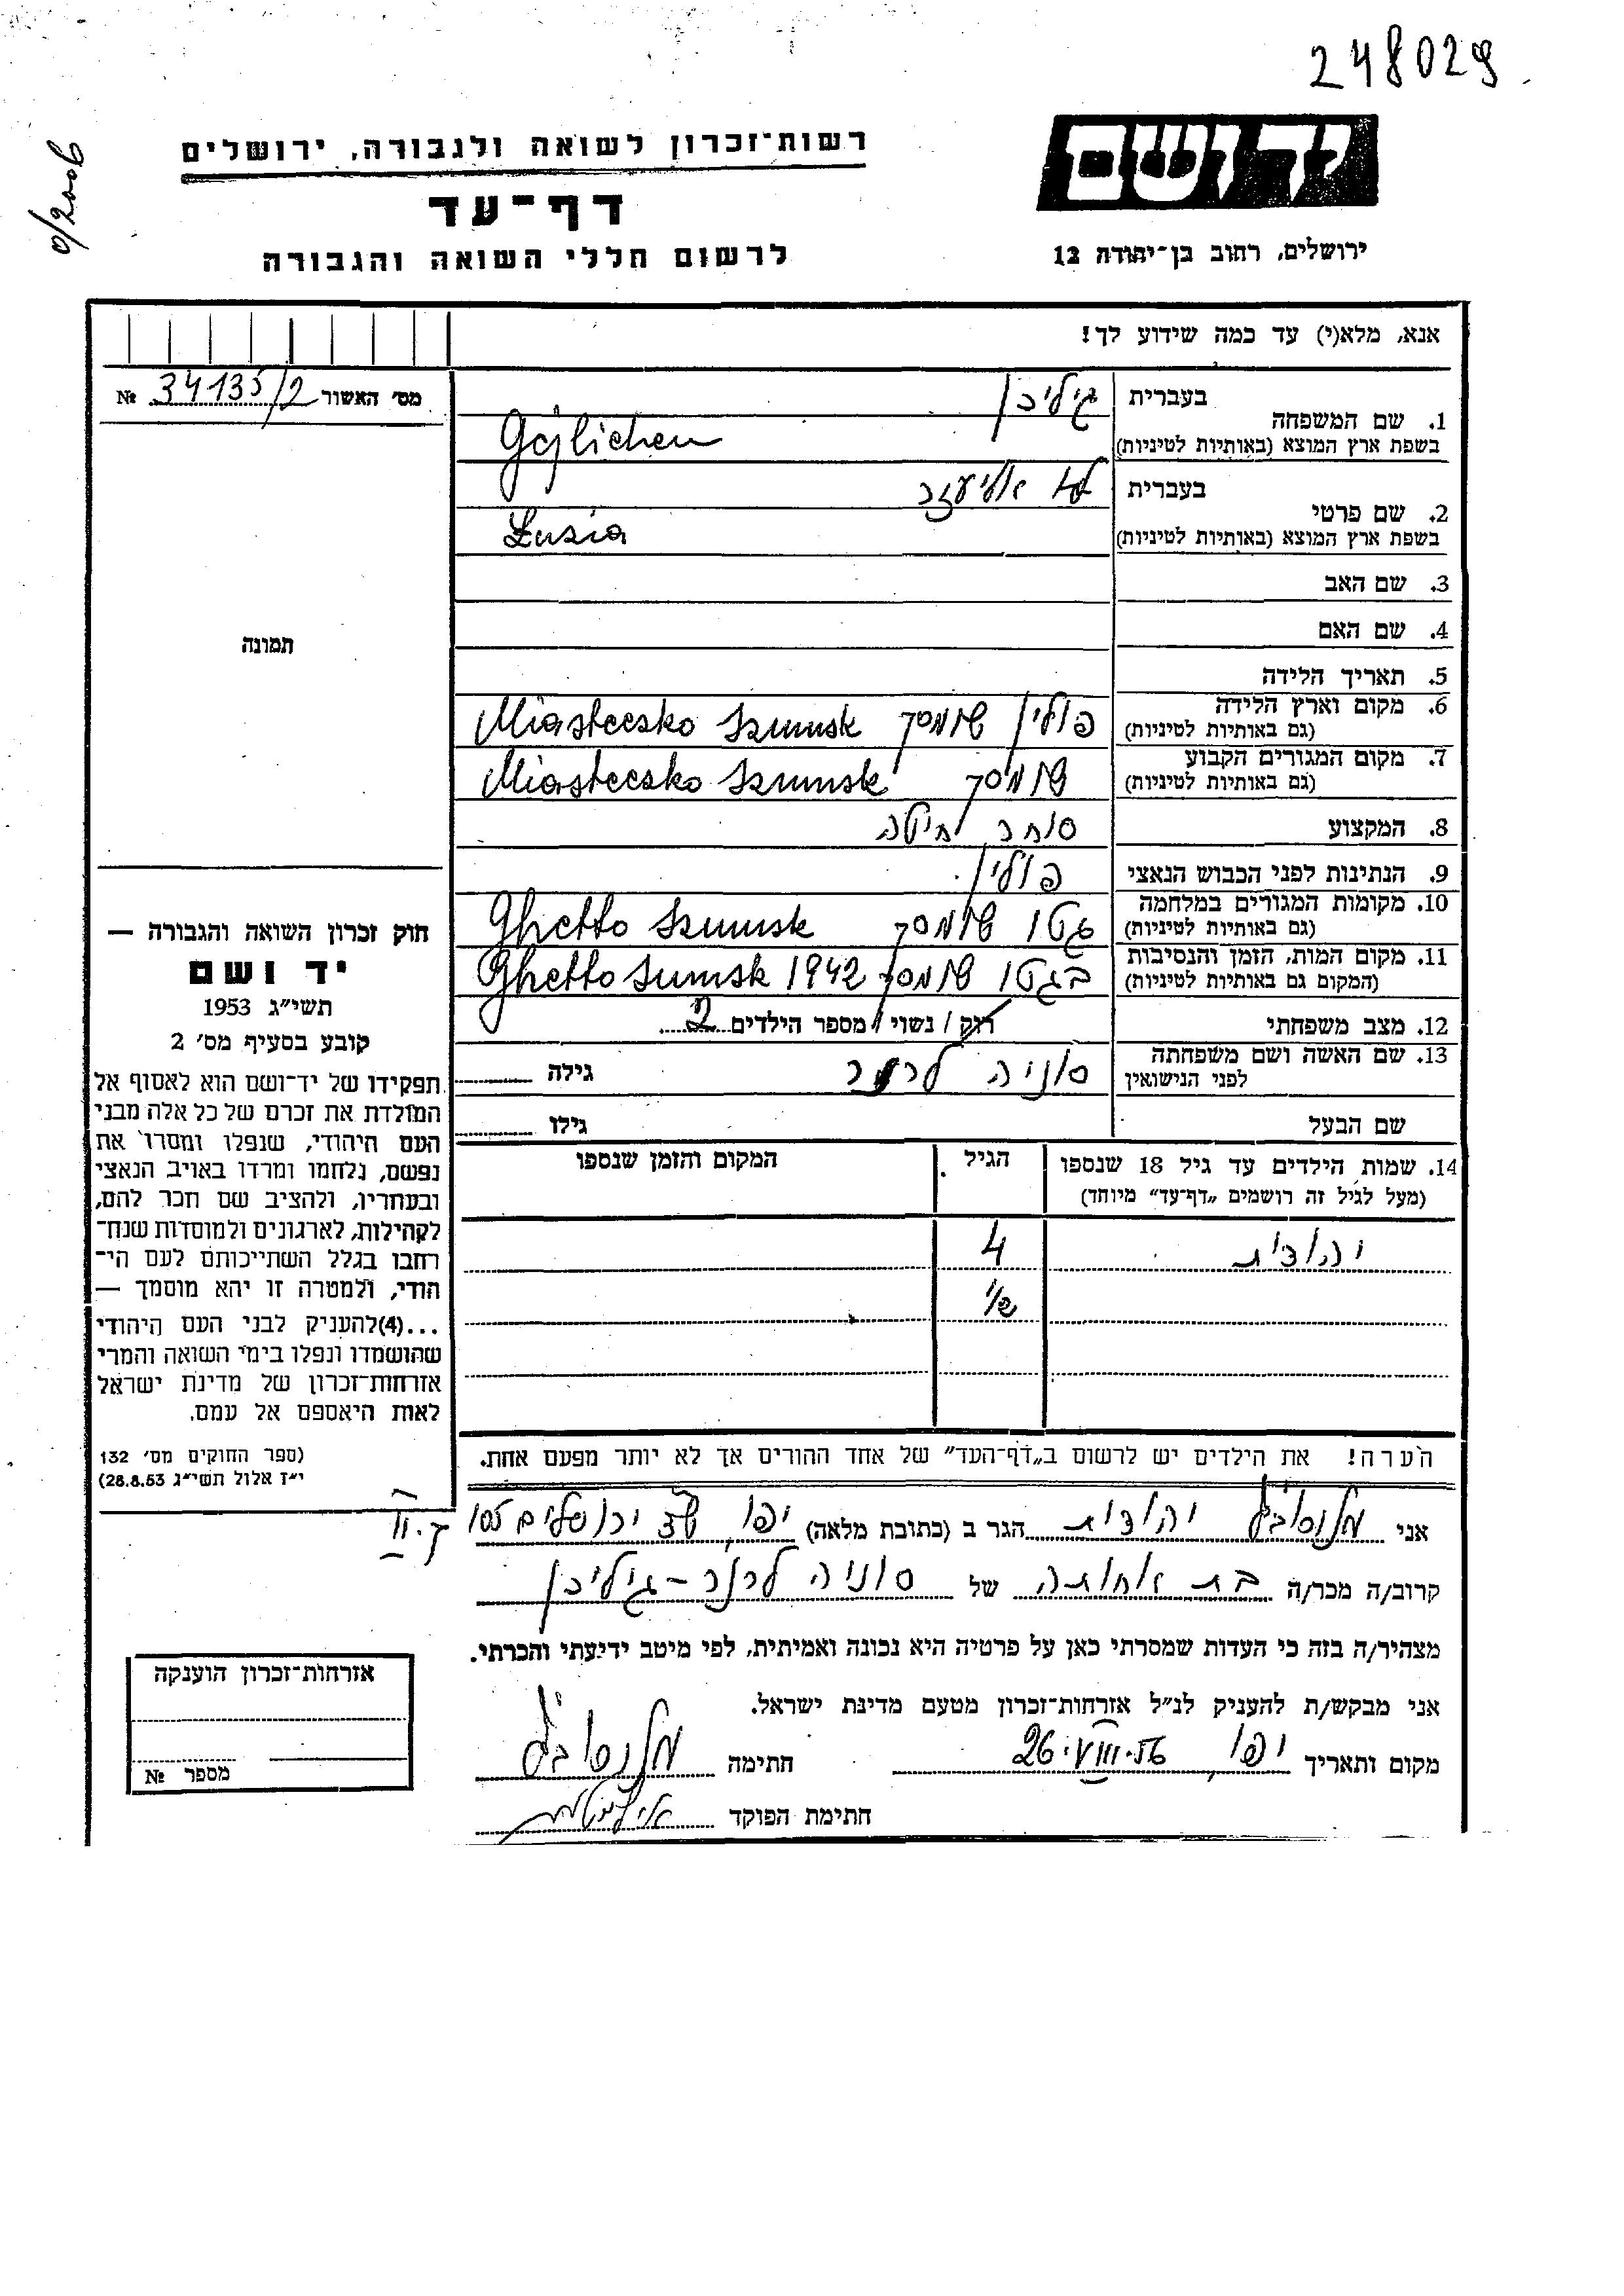 248029
0/2006
יד ושם
רשות־זכרון לשואה ולגבורה, ירושלים
דף־עד
לרשום חללי השואה והגבורה
ירושלים, רחוב בן־יהודה 12
אנא, מלא(י) עד כמה שידוע לך!
מס׳ האשור 34135/2 №
1. שם המשפחה
בעברית גילכן
בשפת ארץ המוצא (באותיות לטיניות) Gejlichen
2. שם פרטי
בעברית אליעזר
בשפת ארץ המוצא (באותיות לטיניות) Luzia
3. שם האב
4. שם האם
5. תאריך הלידה
6. מקום וארץ הלידה פולין שומסק Miasteczko Szumsk
(גם באותיות לטיניות)
7. מקום המגורים הקבוע שומסק Miasteczko Szumsk
(גם באותיות לטיניות)
8. המקצוע סוחר חיטה
9. הנתינות לפני הכבוש הנאצי פולין.
10. מקומות המגורים במלחמה גטו שומסק Ghetto Szumsk
(גם באותיות לטיניות)
11. מקום המות, הזמן והנסיבות בגטו שומסק 1942 Ghetto Sumsk
(המקום גם באותיות לטיניות)
12. מצב משפחתי רוק / נשוי / מספר הילדים 2
13. שם האשה ושם משפחתה סוניה לרנר גילה
לפני הנישואין
שם הבעל גילו
14. שמות הילדים עד גיל 18 שנספו הגיל המקום והזמן שנספו
(מעל לגיל זה רושמים „דף־עד״ מיוחד)
יהודית 4
½
הערה! את הילדים יש לרשום ב„דף־העד״ של אחד ההורים אך לא יותר מפעם אחת.
תמונה
חוק זכרון השואה והגבורה —
יד ושם
תשי״ג 1953
קובע בסעיף מס׳ 2
תפקידו של יד־ושם הוא לאסוף אל
המולדת את זכרם של כל אלה מבני
העם היהודי, שנפלו ומסרו את
נפשם, נלחמו ומרדו באויב הנאצי
ובעוזריו, ולהציב שם וזכר להם,
לקהילות, לארגונים ולמוסדות שנח־
רבו בגלל השתייכותם לעם הי־
הודי, ולמטרה זו יהא מוסמך —
...(4)להעניק לבני העם היהודי
שהושמדו ונפלו בימי השואה והמרי
אזרחות־זכרון של מדינת ישראל
לאות היאספם אל עמם.
(ספר החוקים מס׳ 132
י״ז אלול תשי״ג 28.8.53)
אני יהודית הגר ב (כתובת מלאה) יפו שד ירושלים
קרוב/ה מכר/ה בת אחותה של סוניה לרנר - גילכן
מצהיר/ה בזה כי העדות שמסרתי כאן על פרטיה היא נכונה ואמיתית, לפי מיטב ידיעתי והכרתי.
אני מבקש/ת להעניק לנ״ל אזרחות־זכרון מטעם מדינת ישראל.
מקום ותאריך יפו, 26.VIII.56 חתימה
חתימת הפוקד
אזרחות־זכרון הוענקה
מספר №